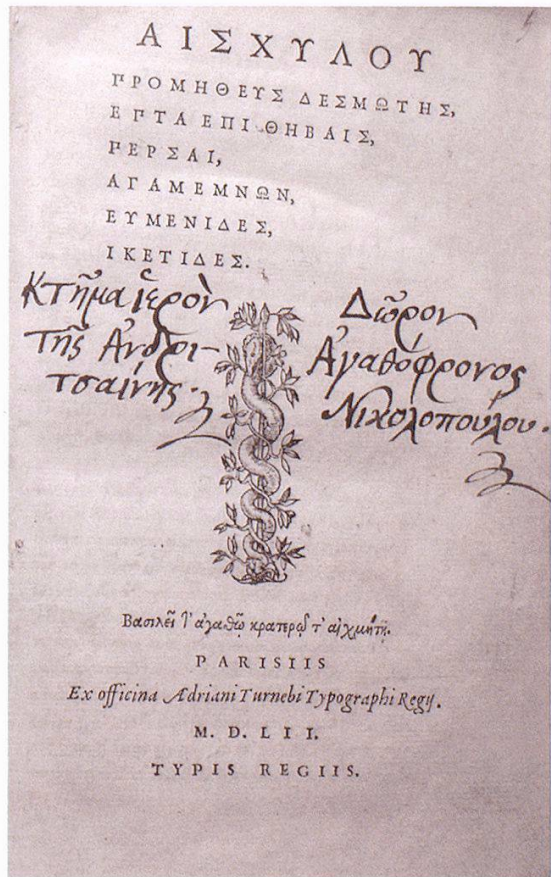 ΑΙΣΧΥΛΟΥ
ΠΡΟΜΗΘΕΥΣ ΔΕΣΜΩΤΗΣ,
ΕΠΤΑ ΕΠΙ ΘΗΒΑΙΣ,
ΠΕΡΣΑΙ,
ΑΓΑΜΕΜΝΩΝ,
ΕΥΜΕΝΙΔΕΣ,
ΙΚΕΤΙΔΕΣ.
Κτῆμα ἱερὸν
τῆς Ἀνδρι-
τσαίνης.
Δῶρον
Ἀγαθόφρονος
Νικολοπούλου.
Βασιλεῖ τ' ἀγαθῷ κρατερῷ τ' αἰχμητῇ.
PARISIIS
Ex officina Adriani Turnebi Typographi Regij.
M. D. LII.
TYPIS REGIIS.